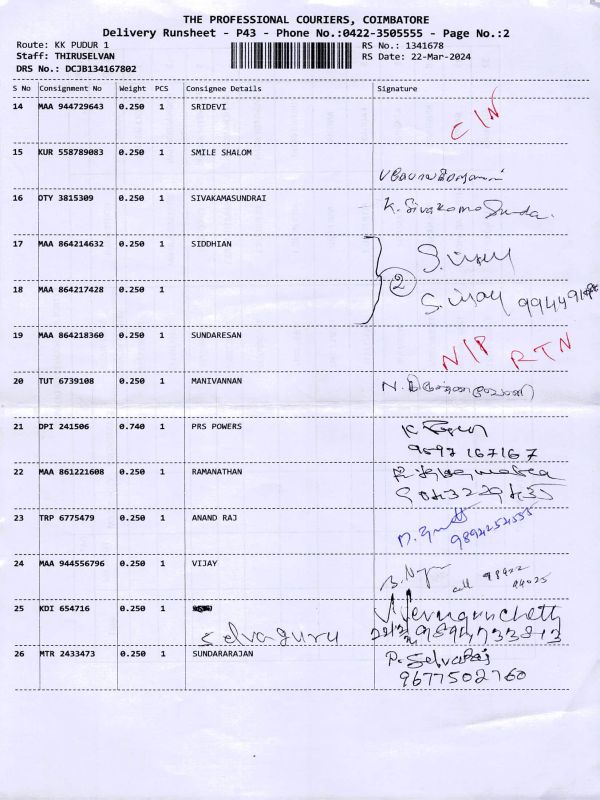 THE PROFESSIONAL COURIERS, COIMBATORE
Delivery Runsheet - P43 - Phone No.:0422-3505555 - Page No.:2
Route: KK PUDUR 1 RS No.: 1341678
Staff: THIRUSELVAN RS Date: 22-Mar-2024
DRS No.: DCJB134167802
S No Consignment No Weight PCS Consignee Details Signature
14 MAA 944729643 0.250 1 SRIDEVI C/N
15 KUR 558789083 0.250 1 SMILE SHALOM
16 OTY 3815309 0.250 1 SIVAKAMASUNDRAI K. Sivakama Sunda.
17 MAA 864214632 0.250 1 SIDDHIAN S. vijay
2
18 MAA 864217428 0.250 1 S. vijay
19 MAA 864218360 0.250 1 SUNDARESAN N/P RTN
20 TUT 6739108 0.250 1 MANIVANNAN
21 DPI 241506 0.740 1 PRS POWERS K
9597 167167
22 MAA 861221608 0.250 1 RAMANATHAN
23 TRP 6775479 0.250 1 ANAND RAJ
24 MAA 944556796 0.250 1 VIJAY
25 KDI 654716 0.250 1
Selvaguru
26 MTR 2433473 0.250 1 SUNDARARAJAN P. Selvaraj
9677502760